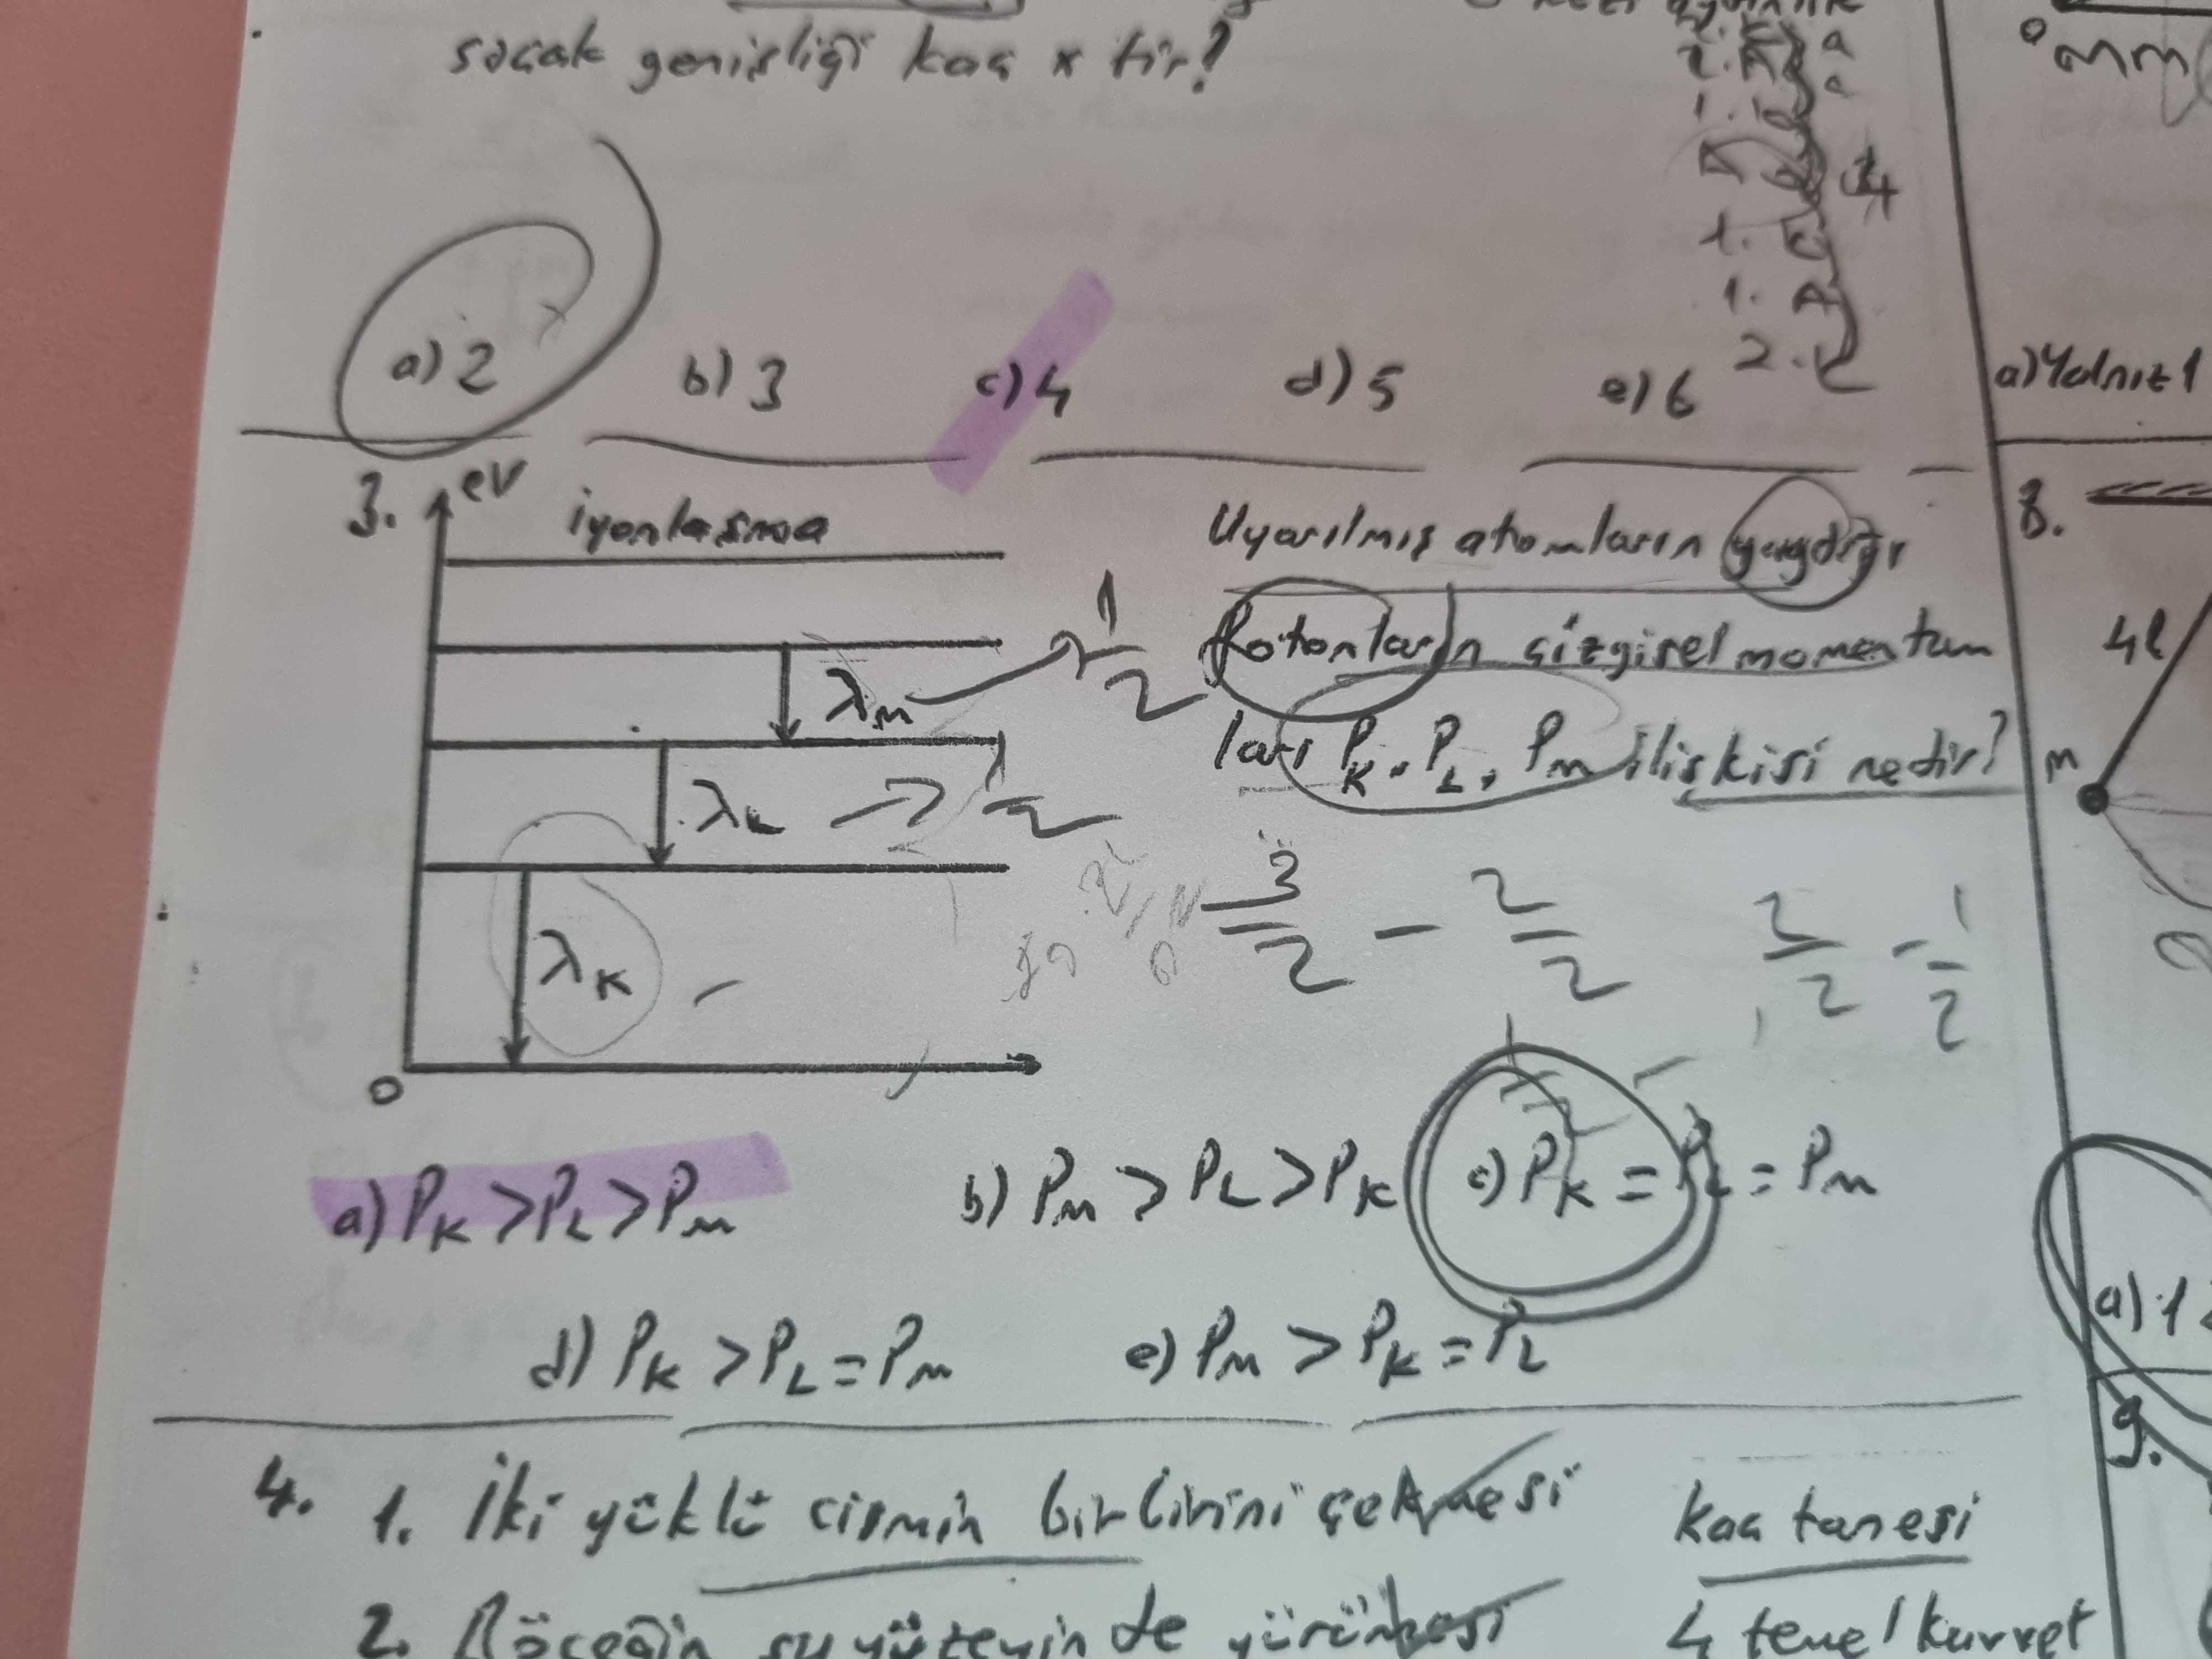 saçak genişliği kaç x tir?
a) 2 b) 3 c) 4 d) 5 e) 6
2. K
3. eV
iyonlaşma
λM
1/2
λL → 1/2
λK
0
Uyarılmış atomların yaydığı
fotonların çizgisel momentum
ları PK, PL, PM ilişkisi nedir?
3/2 - 2/2 2/2 - 1/2
a) PK > PL > PM b) PM > PL > PK c) PK = PL = PM
d) PK > PL = PM e) PM > PK = PL
4. 1. İki yüklü cismin birbirini çekmesi kaç tanesi
2. Böceğin su yüzeyinde yürümesi 4 temel kuvvet
a) Yalnız 1
8.
4l
M
a) 1
9.